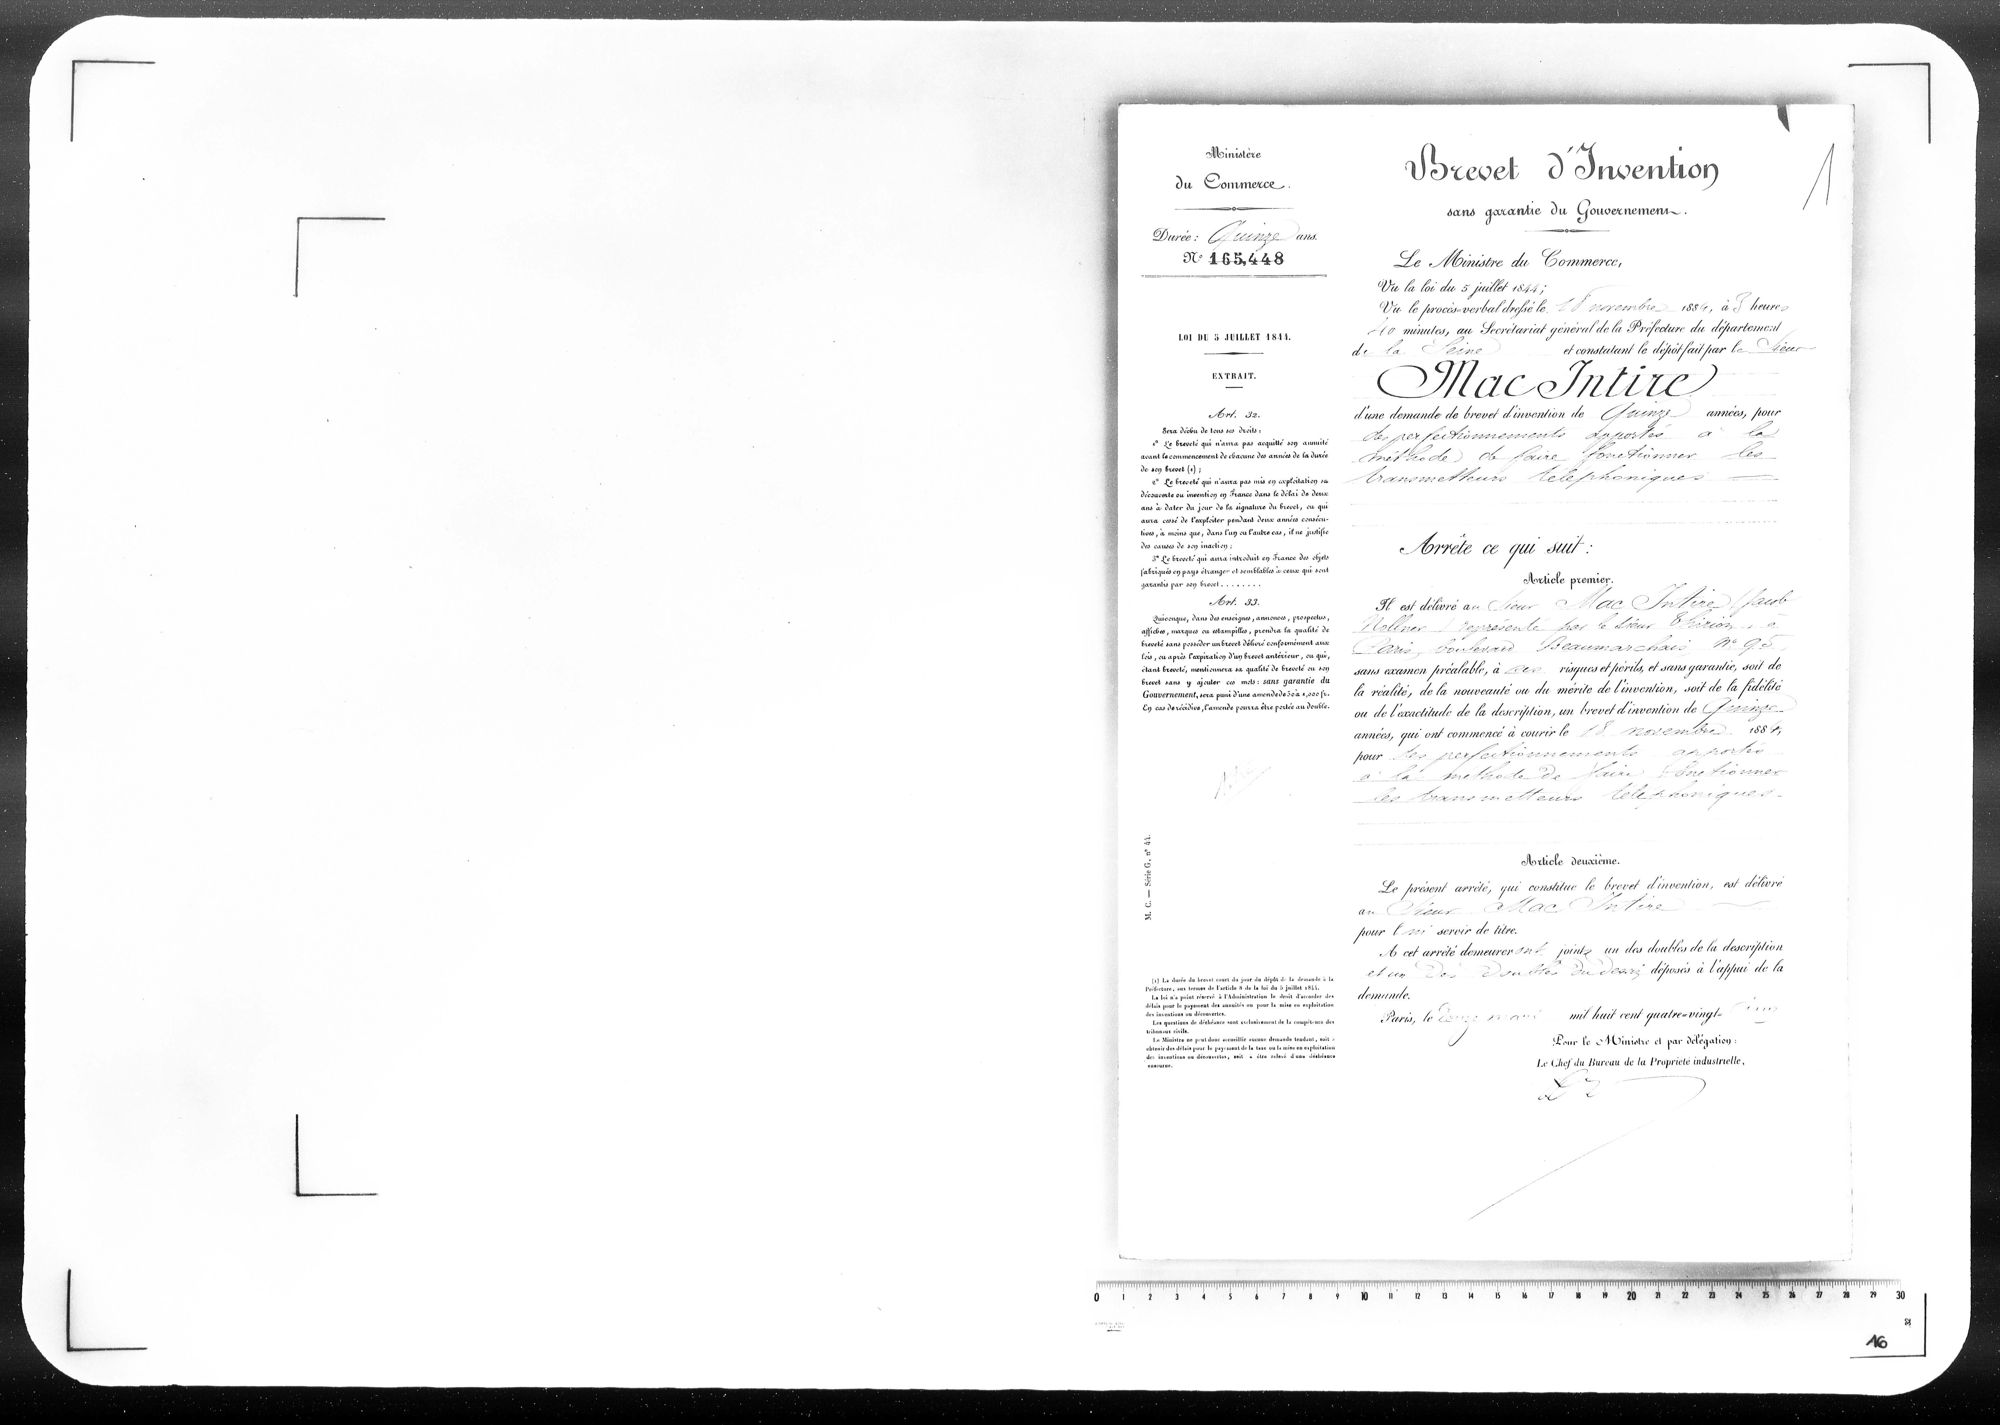 Ministère
du Commerce.
Durée: Quinze ans.
N° 165,448
LOI DU 5 JUILLET 1844.
EXTRAIT.
Art. 32.
Sera déchu de tous ses droits:
1° Le breveté qui n'aura pas acquitté son annuité
avant le commencement de chacune des années de la durée
de son brevet (1);
2° Le breveté qui n'aura pas mis en exploitation sa
découverte ou invention en France dans le délai de deux
ans à dater du jour de la signature du brevet, ou qui
aura cessé de l'exploiter pendant deux années consécu-
tives, à moins que, dans l'un ou l'autre cas, il ne justifie
des causes de son inaction;
3° Le breveté qui aura introduit en France des objets
fabriqués en pays étranger et semblables à ceux qui sont
garantis par son brevet........
Art. 33.
Quiconque, dans des enseignes, annonces, prospectus,
affiches, marques ou estampilles, prendra la qualité de
breveté sans posséder un brevet délivré conformément aux
lois, ou après l'expiration d'un brevet antérieur, ou qui,
étant breveté, mentionnera sa qualité de breveté ou son
brevet sans y ajouter ces mots: sans garantie du
Gouvernement, sera puni d'une amende de 50 à 1,000 fr.
En cas de récidive, l'amende pourra être portée au double.
M. C. — Série G, n° 44.
(1) La durée du brevet court du jour du dépôt de la demande à la
Préfecture, aux termes de l'article 8 de la loi du 5 juillet 1844.
La loi n'a point réservé à l'Administration le droit d'accorder des
délais pour le payement des annuités ou pour la mise en exploitation
des inventions ou découvertes.
Les questions de déchéance sont exclusivement de la compétence des
tribunaux civils.
Le Ministre ne peut donc accueillir aucune demande tendant, soit à
obtenir des délais pour le payement de la taxe ou la mise en exploitation
des inventions ou découvertes, soit à être relevé d'une déchéance
encourue.
Brevet d'Invention
1
sans garantie du Gouvernement.
Le Ministre du Commerce,
Vu la loi du 5 juillet 1844;
Vu le procès-verbal dressé le 18 novembre 1884, à 3 heures
40 minutes, au Secrétariat général de la Préfecture du département
de la Seine et constatant le dépôt fait par le Sieur
Mac Intire
d'une demande de brevet d'invention de Quinze années, pour
des perfectionnements apportés à la
méthode de faire fonctionner les
transmetteurs téléphoniques
Arrête ce qui suit:
Article premier.
Il est délivré au Sieur Mac Intire (Jacob
représenté par le sieur Thirion, à
Paris, boulevard Beaumarchais N° 95,
sans examen préalable, à ses risques et périls, et sans garantie, soit de
la réalité, de la nouveauté ou du mérite de l'invention, soit de la fidélité
ou de l'exactitude de la description, un brevet d'invention de Quinze
années, qui ont commencé à courir le 18 novembre 1884,
pour des perfectionnements apportés
à la méthode de faire fonctionner
les transmetteurs téléphoniques.
Article deuxième.
Le présent arrêté, qui constitue le brevet d'invention, est délivré
au Sieur Mac Intire
pour lui servir de titre.
A cet arrêté demeureront joints un des doubles de la description
et un des doubles du dessin déposés à l'appui de la
demande.
Paris, le mars mil huit cent quatre-vingt-cinq
Pour le Ministre et par délégation:
Le Chef du Bureau de la Propriété industrielle,
0 1 2 3 4 5 6 7 8 9 10 11 12 13 14 15 16 17 18 19 20 21 22 23 24 25 26 27 28 29 30
16